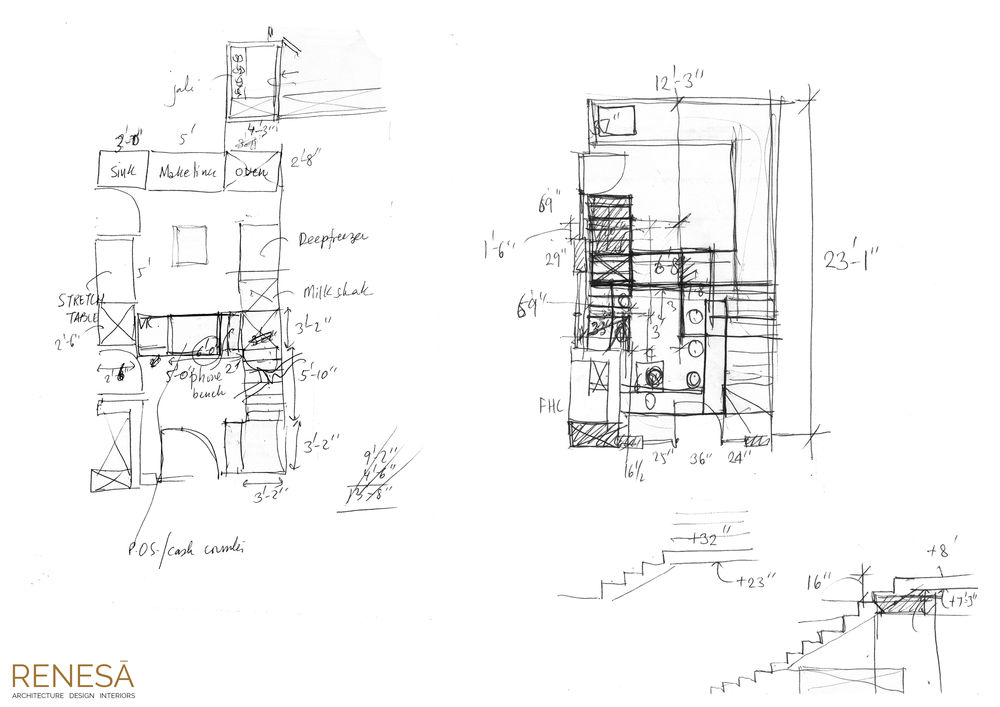 jali
4'-3"
3'-0"
5'
2'-8"
Sink
Makeline
oven
Deepfreezer
5'
Milkshak
STRETCH
TABLE
2'-6"
3'-2"
5'-0"
2'
5'-10"
phone
bench
3'-2"
3'-2"
9'-2"
4'-6"
13'-8"
P.O.S./cash counter
12'-3"
6'9"
1'-6"
29"
23'-1"
6'-9"
3'
FHC
25"
36"
24"
6½
+32"
+23"
+8'
16"
+7'-3"
RENESĀ
ARCHITECTURE DESIGN INTERIORS